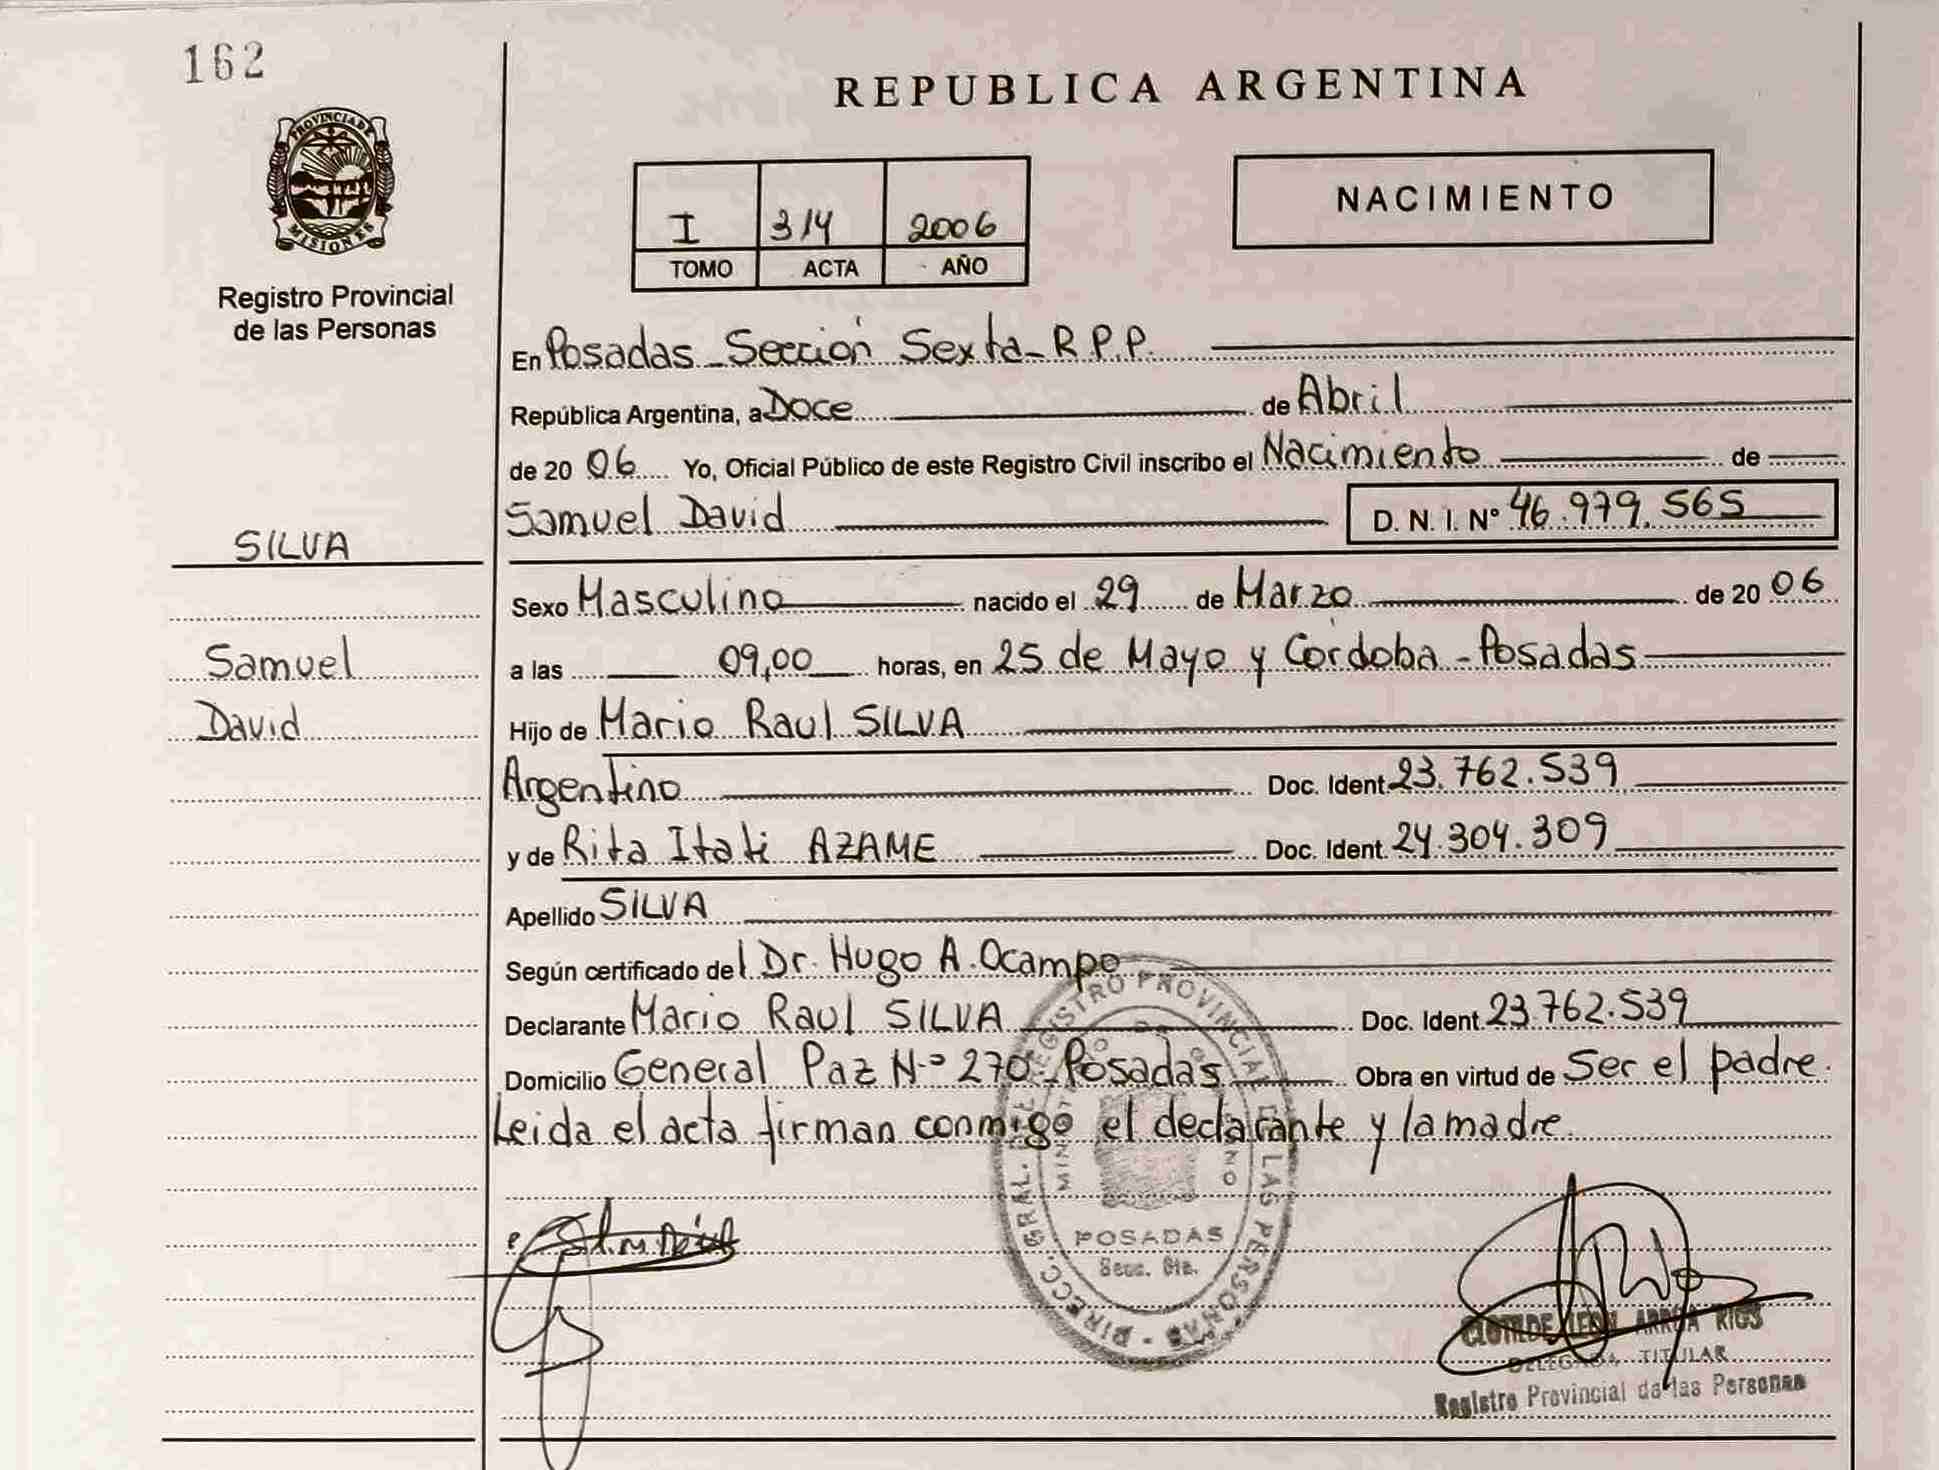 162
REPUBLICA ARGENTINA
PROVINCIA DE
MISIONES
Registro Provincial
de las Personas
I 314 2006
TOMO ACTA AÑO
NACIMIENTO
En Posadas - Sección Sexta - R.P.P.
República Argentina, a Doce de Abril
de 20 06 Yo, Oficial Público de este Registro Civil inscribo el Nacimiento de
Samuel David D. N. I. Nº 46.979.565
SILVA
Samuel
David
Sexo Masculino nacido el 29 de Marzo de 20 06
a las 09,00 horas, en 25 de Mayo y Córdoba - Posadas
Hijo de Mario Raul SILVA
Argentino Doc. Ident. 23.762.539
y de Rita Itati AZAME Doc. Ident. 24.304.309
Apellido SILVA
Según certificado del Dr. Hugo A. Ocampo
Declarante Mario Raul SILVA Doc. Ident. 23.762.539
Domicilio General Paz Nº 270 - Posadas Obra en virtud de Ser el padre.
Leida el acta firman conmigo el declarante y la madre.
DIRECC. GRAL. DEL REGISTRO PROVINCIAL DE LAS PERSONAS
POSADAS
Secc. 6ta.
CLOTILDE LEON RIOS
DELEGADA TITULAR
Registro Provincial de las Personas